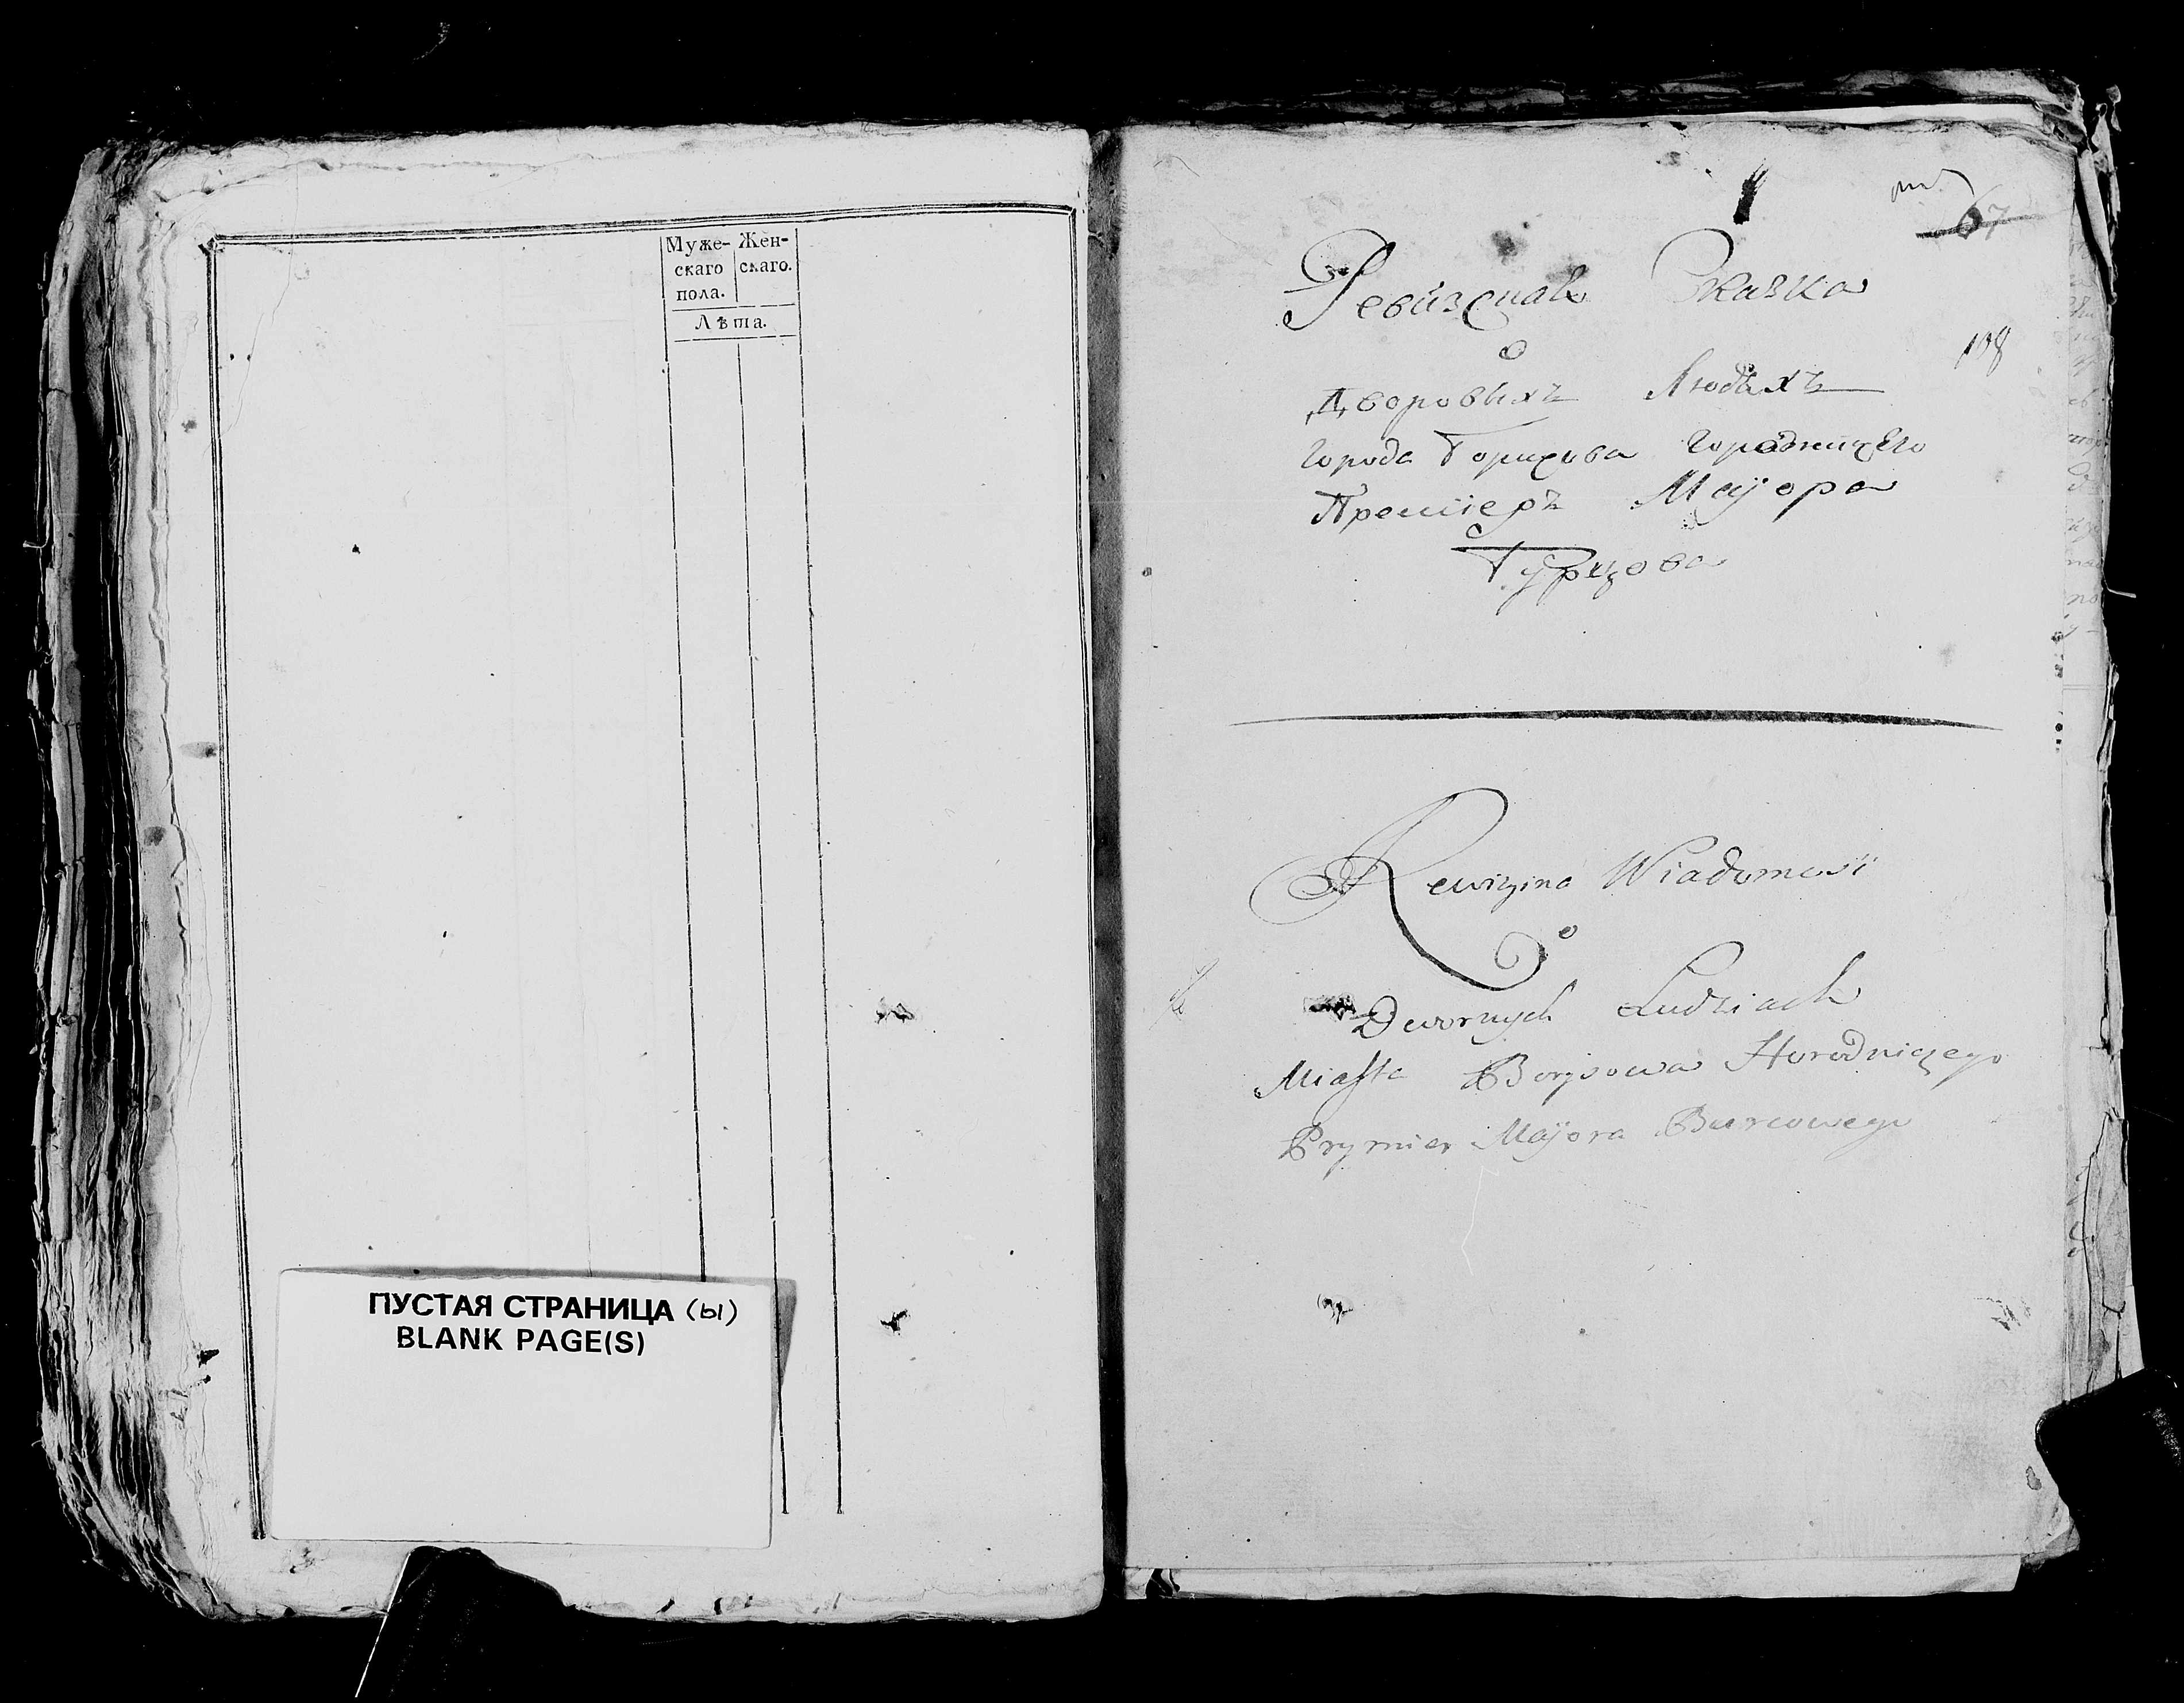 Муже- Жен-
скаго скаго.
пола.
Лѣта.
ПУСТАЯ СТРАНИЦА (ы)
BLANK PAGE(S)
67
Ревизская Сказка
108
о
Дворовыхъ Людѣхъ
Города Борисова Городничего
Премїеръ Маїора
Бурцова
Rewizina Wiadomość
o
Dwornych Ludziach
Miasta Borysowa Horodniczego
Prymier Majora Burcowego